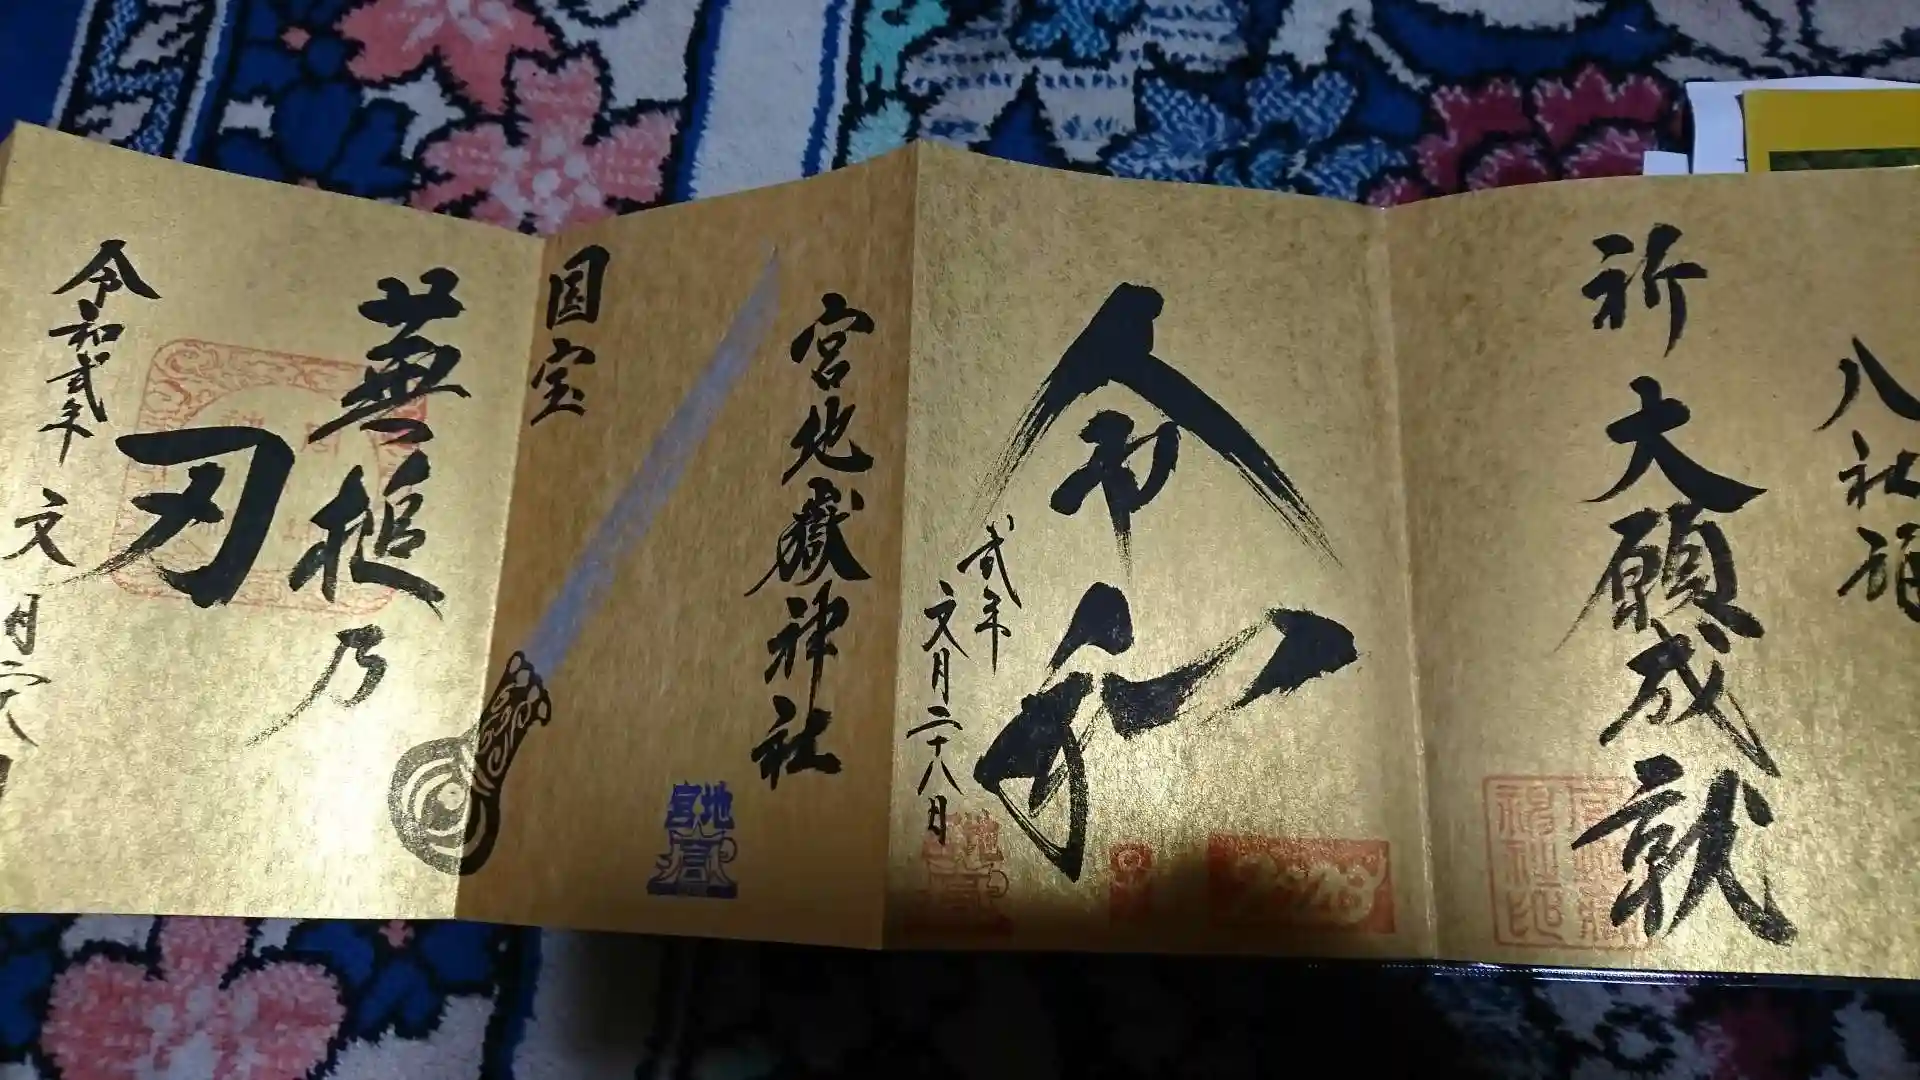 八社
祈大願成就
令和
弐年
文月二十八日
宮地嶽神社
国宝
宮地嶽
乃
刃
令和弐年
文月